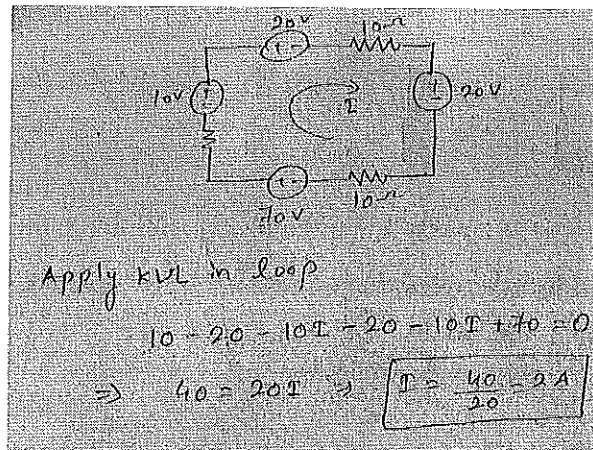 20V 10Ω
10V I 20V
70V 10Ω
Apply KVL in loop
10 - 20 - 10I - 20 - 10I + 70 = 0
⇒ 40 = 20I ⇒ I = 40/20 = 2A